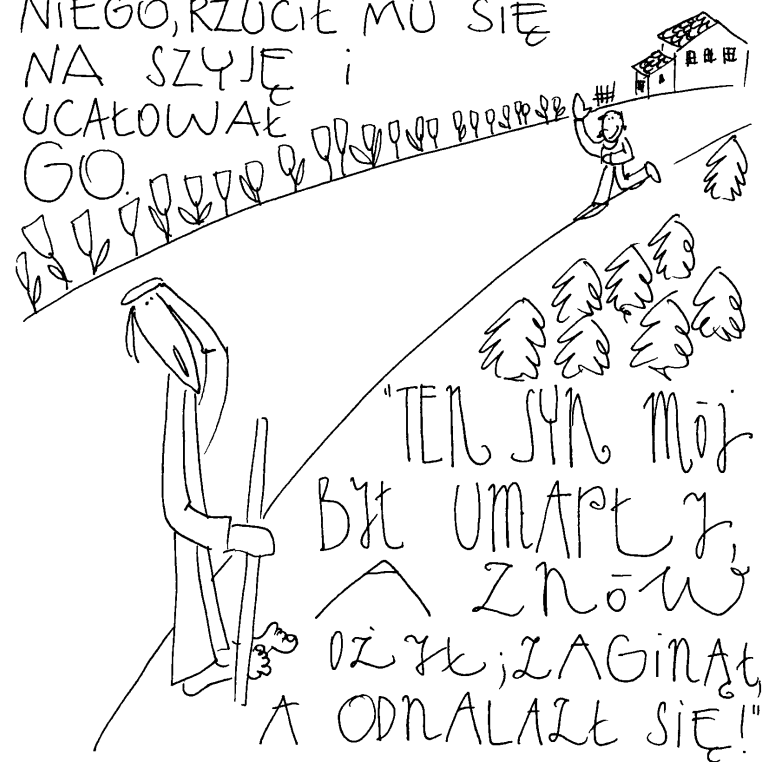 NIEGO, RZUCIŁ MU SIĘ
NA SZYJĘ i
UCAŁOWAŁ
GO.
"TEN SYN MÓJ
BYŁ UMARŁY,
A ZNÓW
OŻYŁ; ZAGINĄŁ,
A ODNALAZŁ SIĘ!"